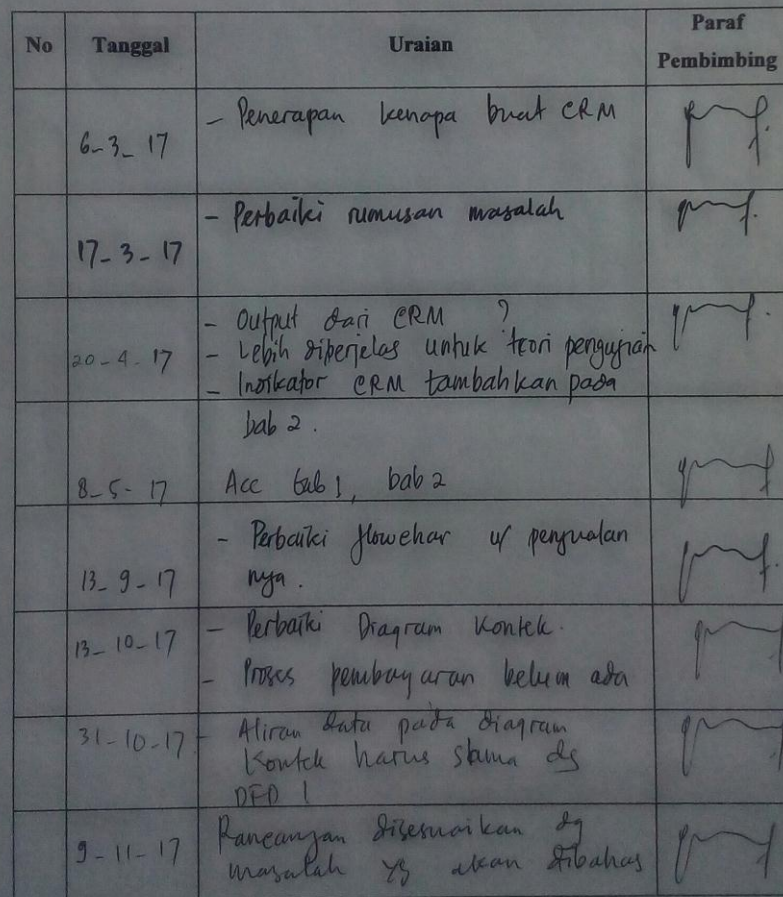 No Tanggal Uraian Paraf Pembimbing
6-3-17 - Penerapan kenapa buat CRM
17-3-17 - Perbaiki rumusan masalah
20-4-17 - Output dari CRM ?
- Lebih diperjelas untuk teori pengujian
- Indikator CRM tambahkan pada
bab 2.
8-5-17 Acc bab 1, bab 2
13-9-17 - Perbaiki flowchar u/ penjualan
nya.
13-10-17 - Perbaiki Diagram Kontek.
- Proses pembayaran belum ada
31-10-17 - Aliran data pada diagram
Kontek harus sama dg
DFD 1
9-11-17 Rancangan disesuaikan dg
masalah yg akan dibahas